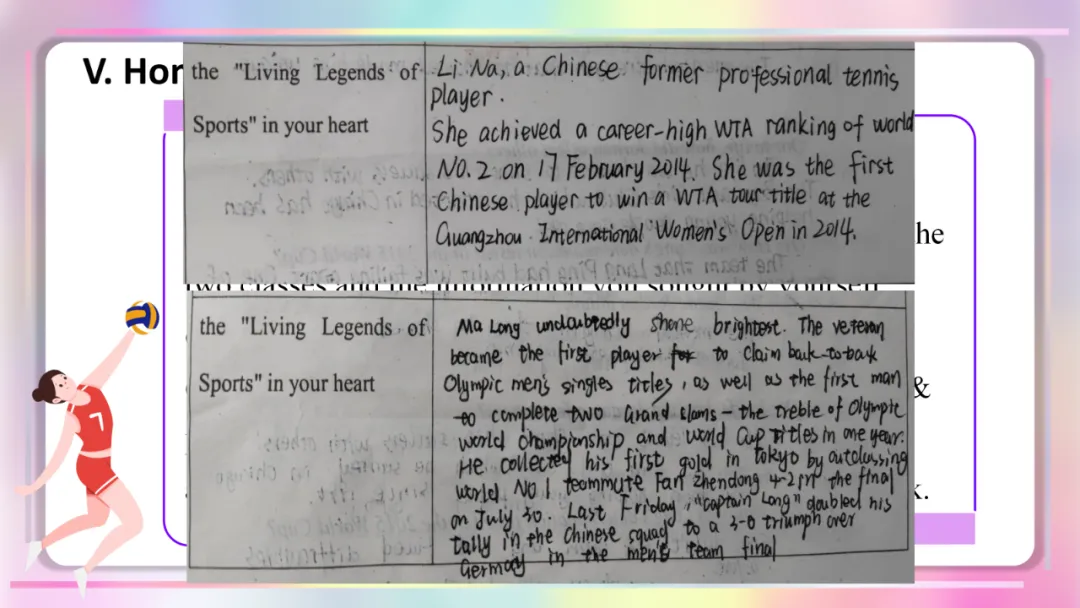 V. Hor
the "Living Legends of
Sports" in your heart
Li Na, a Chinese former professional tennis
player.
She achieved a career-high WTA ranking of world
NO.2 on 17 February 2014. She was the first
Chinese player to win a WTA tour title at the
Guangzhou International Women's Open in 2014.
he
two classes and the information you sought by yourself
the "Living Legends of
Sports" in your heart
Ma Long undoubtedly shone brightest. The veteran
became the first player for to claim back-to-back
Olympic men's singles titles, as well as the first man
to complete two Grand Slams - the treble of Olympic
world championship and world Cup titles in one year.
He collected his first gold in Tokyo by outclassing
world NO 1 teammate Fan Zhendong 4-2 in the final
on July 30. Last Friday, "Captain Long" doubled his
tally in the Chinese squad to a 3-0 triumph over
Germany in the men's team final
&
k.